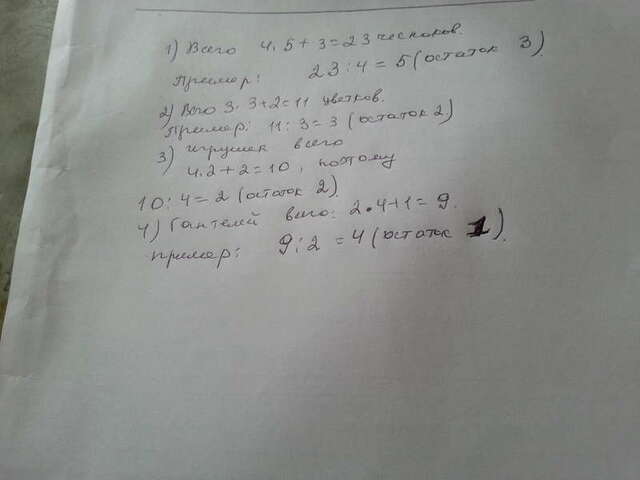 1) Всего 4.5+3=23 чесноков.
Пример: 23:4=5(остаток 3).
2) Всего 3.3+2=11 цветков.
Пример: 11:3=3(остаток 2)
3) игрушек всего
4.2+2=10, поэтому
10:4=2(остаток 2).
4) Гантелей всего: 2•4+1=9.
пример: 9:2=4(остаток 1).